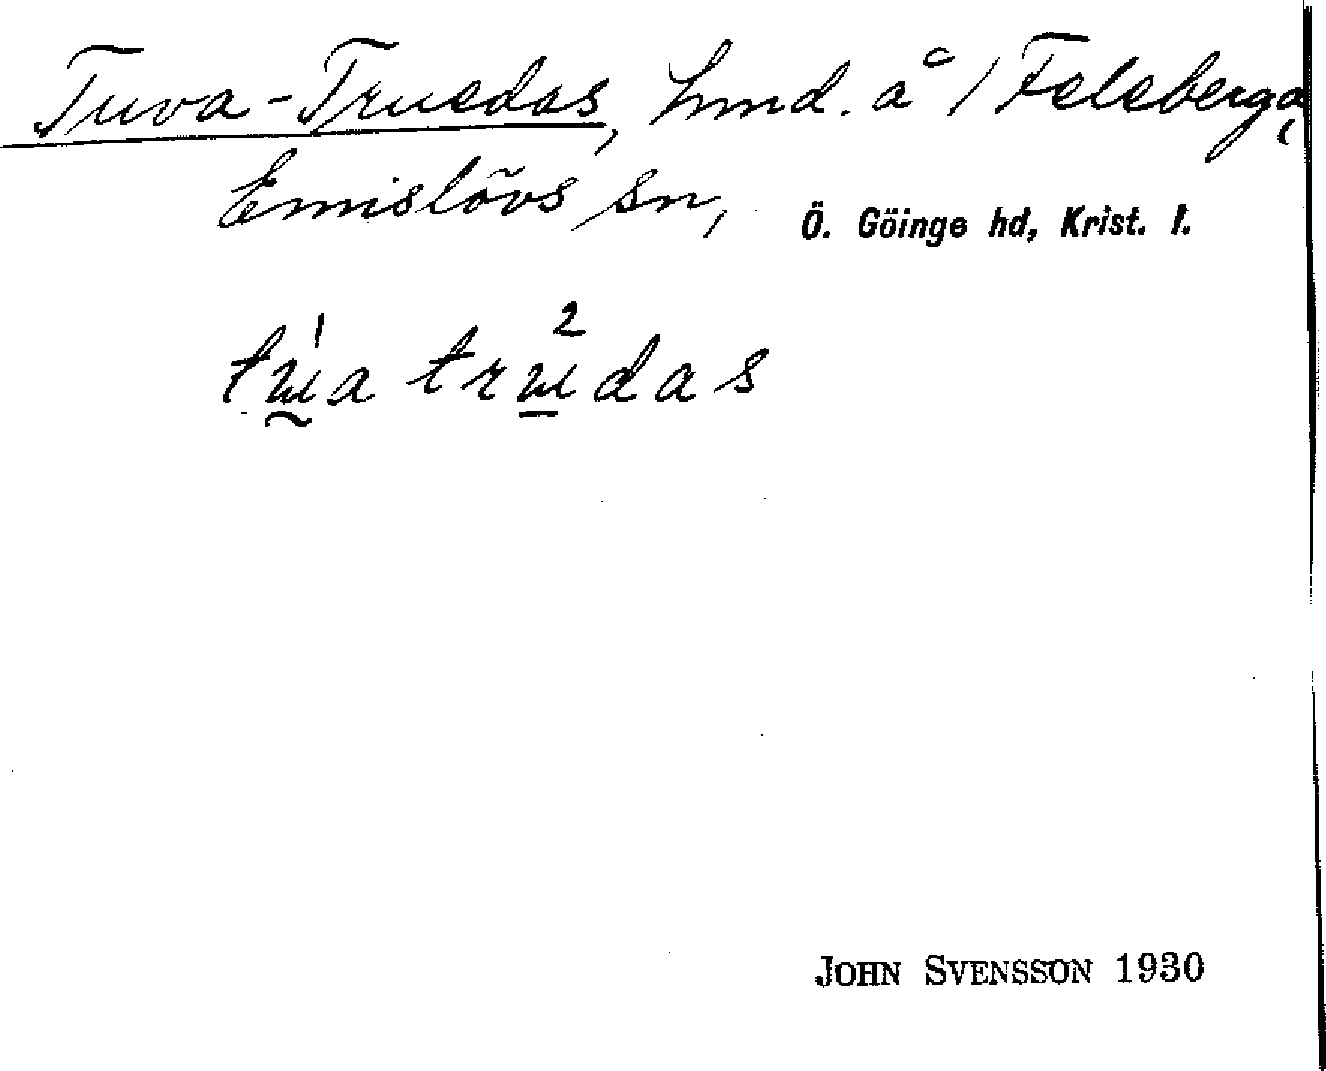 Tuva-Truedas, hmd. å 1/ Feleberga,
Emislövs sn, Ö. Göinge hd, Krist. l.
JOHN SVENSSON 1930